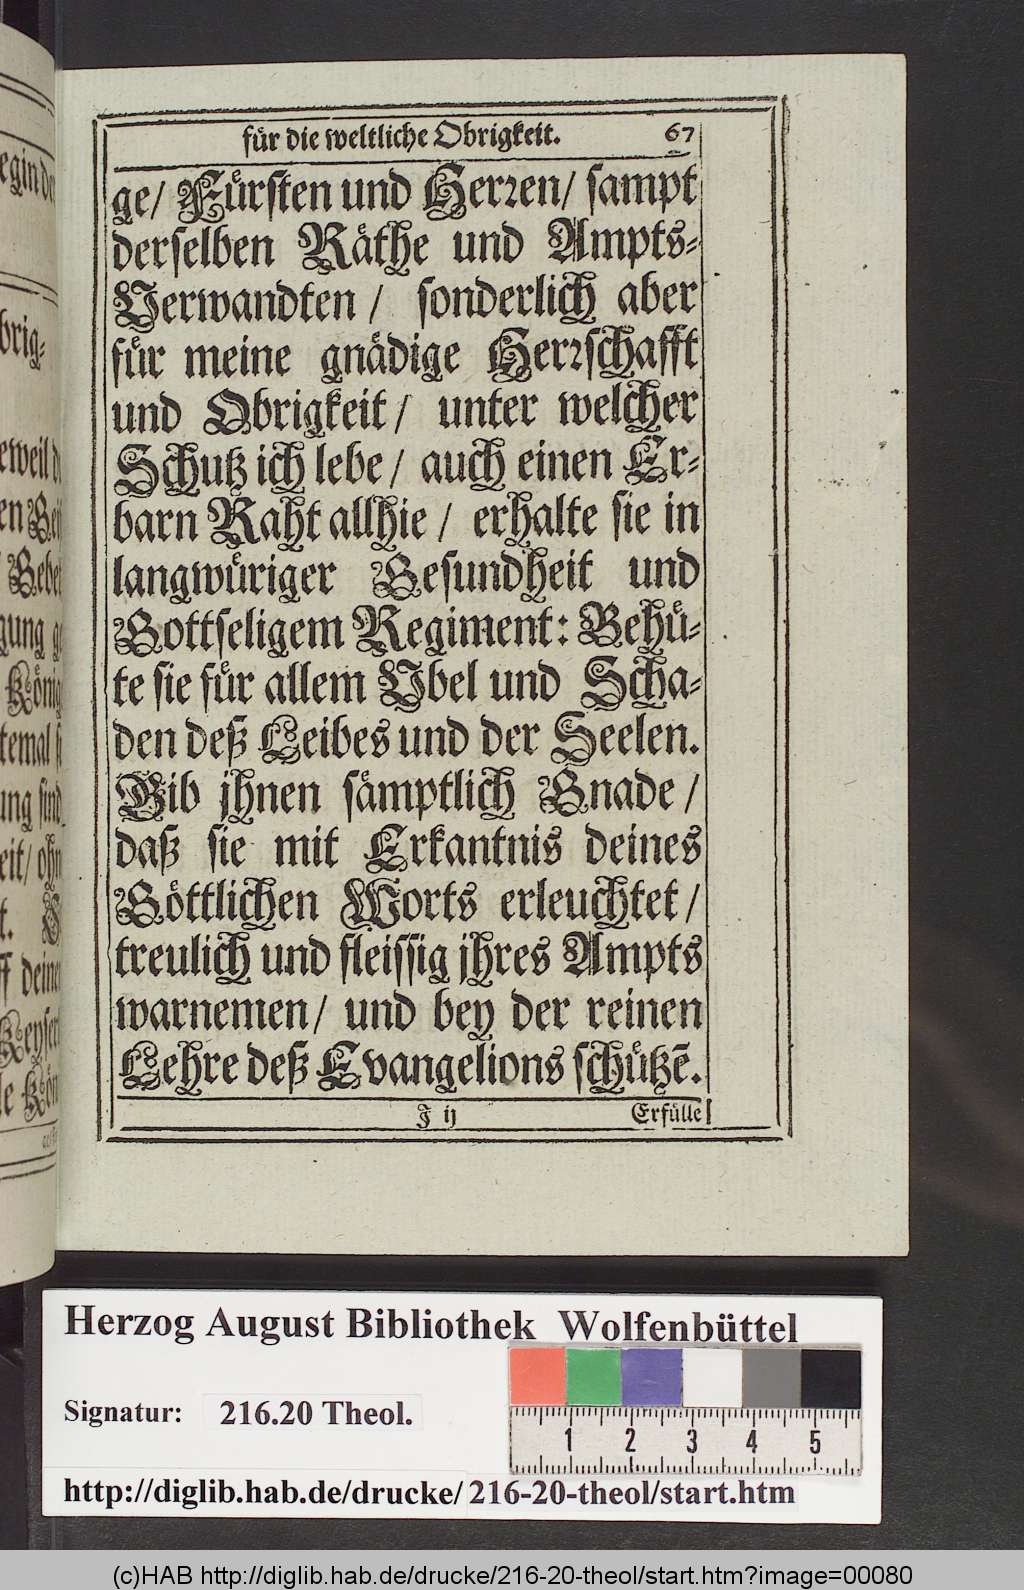 für die weltliche Obrigkeit. 67
ge/ Fürsten und Herren/ sampt
derselben Räthe und Ampts-
Verwandten / sonderlich aber
für meine gnädige Herrschafft
und Obrigkeit/ unter welcher
Schutz ich lebe/ auch einen Er-
barn Raht allhie/ erhalte sie in
langwüriger Gesundheit und
Gottseligem Regiment: Behü-
te sie für allem Ubel und Scha-
den deß Leibes und der Seelen.
Gib jhnen sämptlich Gnade/
daß sie mit Erkantnis deines
Göttlichen Worts erleuchtet/
treulich und fleissig jhres Ampts
warnemen/ und bey der reinen
Lehre deß Evangelions schütze̅.
J ij Erfülle
Herzog August Bibliothek Wolfenbüttel
Signatur: 216.20 Theol.
1 2 3 4 5
http://diglib.hab.de/drucke/216-20-theol/start.htm
(c)HAB http://diglib.hab.de/drucke/216-20-theol/start.htm?image=00080